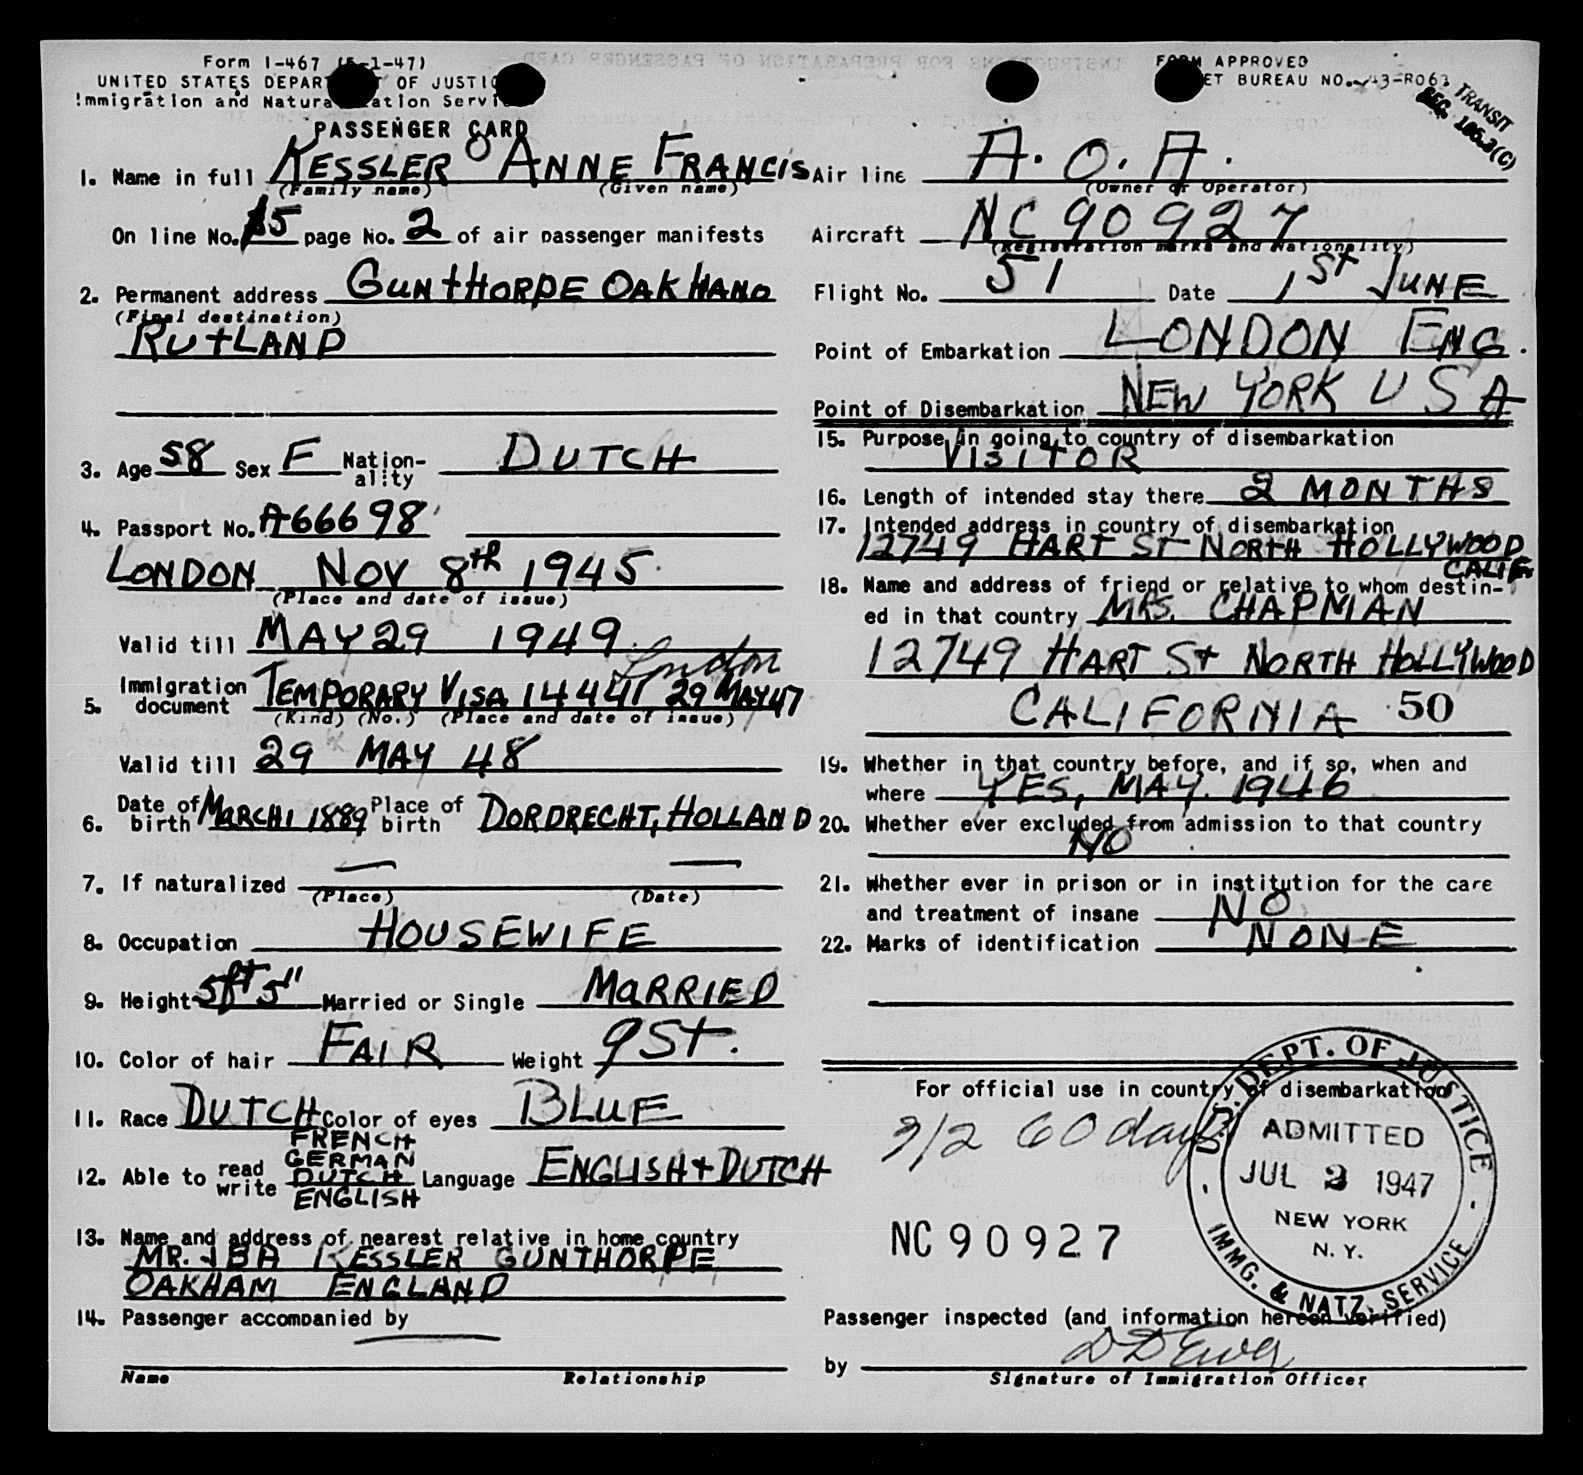 Form I-467 (5-1-47)
UNITED STATES DEPAR OF JUSTIC
Immigration and Natura ation Servi
PASSENGER CARD
FORM APPROVED
ET BUREAU NO. 43-R063
TRANSIT
SEC. 105.3(C)
1. Name in full KESSLER ANNE FRANCIS
(Family name) (Given name)
On line No. 15 page No. 2 of air passenger manifests
2. Permanent address GUNTHORPE OAKHAM
(Final destination)
RUTLAND
3. Age 58 Sex F Nation-ality DUTCH
4. Passport No. A66698
LONDON NOV 8th 1945.
(Place and date of issue)
Valid till MAY 29 1949.
London
5. Immigration document TEMPORARY VISA 14441 29 MAY 47
(Kind) (No.) (Place and date of issue)
Valid till 29 MAY 48
6. Date of birth MARCH 1 1889 Place of birth DORDRECHT, HOLLAND
7. If naturalized — —
(Place) (Date)
8. Occupation HOUSEWIFE
9. Height 5ft 5" Married or Single MARRIED
10. Color of hair FAIR Weight 9 ST.
11. Race DUTCH Color of eyes BLUE
12. Able to read write FRENCH GERMAN DUTCH ENGLISH Language ENGLISH + DUTCH
13. Name and address of nearest relative in home country
MR. JBA KESSLER GUNTHORPE
OAKHAM ENGLAND
14. Passenger accompanied by —
Name Relationship
Air line A.O.A.
(Owner or Operator)
Aircraft NC 90927
(Registration marks and Nationality)
Flight No. 51 Date 1st JUNE
Point of Embarkation LONDON ENG.
Point of Disembarkation NEW YORK U S A
15. Purpose in going to country of disembarkation
VISITOR
16. Length of intended stay there 2 MONTHS
17. Intended address in country of disembarkation
12749 HART ST NORTH HOLLYWOOD
CALIF.
18. Name and address of friend or relative to whom destin-
ed in that country MRS. CHAPMAN
12749 HART ST NORTH HOLLYWOOD
CALIFORNIA 50
19. Whether in that country before, and if so, when and
where YES, MAY. 1946
20. Whether ever excluded from admission to that country
NO
21. Whether ever in prison or in institution for the care
and treatment of insane NO
22. Marks of identification NONE
For official use in country of disembarkation
3/2 60 days
U.S. DEPT. OF JUSTICE
ADMITTED
JUL 2 1947
NEW YORK
N. Y.
IMMG. & NATZ. SERVICE
NC 90927
Passenger inspected (and information hereon verified)
by
Signature of Immigration Officer